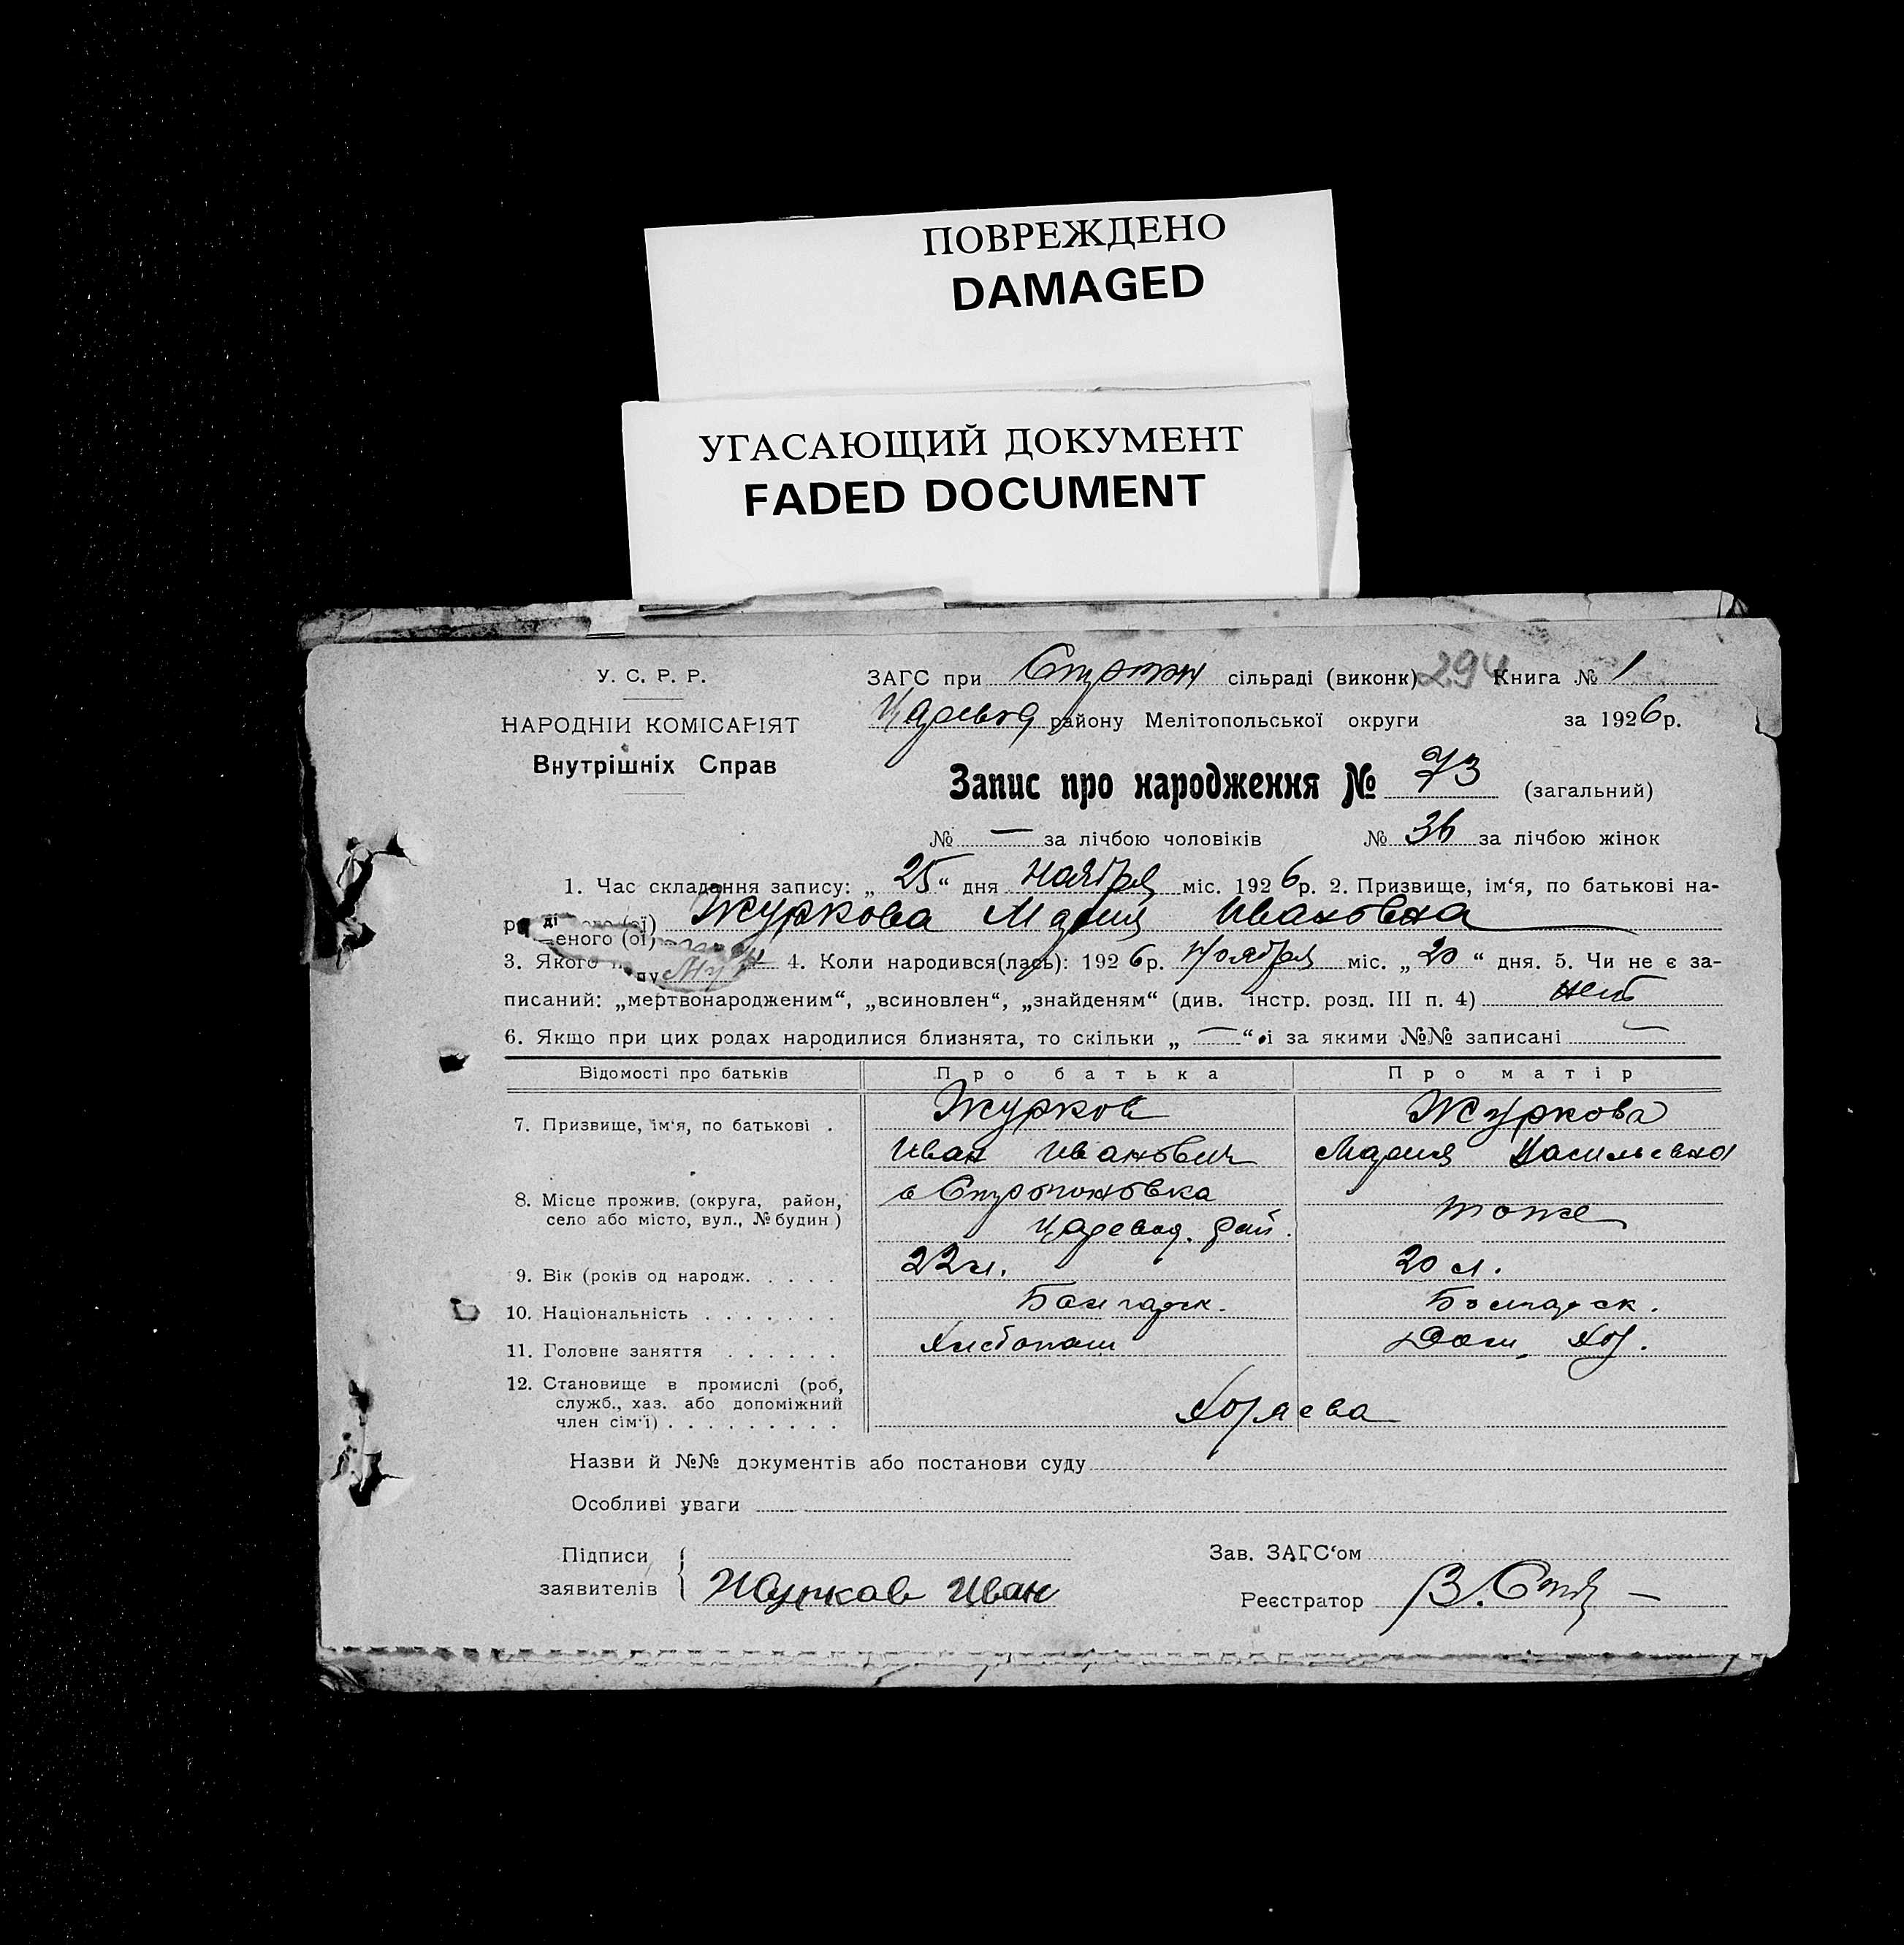 ПОВРЕЖДЕНО
DAMAGED
УГАСАЮЩИЙ ДОКУМЕНТ
FADED DOCUMENT
У. С. Р. Р.
НАРОДНІЙ КОМІСАРІЯТ
Внутрішніх Справ
ЗАГС при сільраді (виконк) 294 Книга № 1
Царевод району Мелітопольської округи за 1926 р.
Запис про народження № 73 (загальний)
№ — за лічбою чоловіків № 36 за лічбою жінок
1. Час складання запису: „ 25 “ дня ноября міс. 1926 р. 2. Призвище, ім‘я, по батькові на-
Журкова Мария Ивановна
еного (ої)
3. Якого 4. Коли народився(лась): 1926 р. Ноября міс. „ 20 “ дня. 5. Чи не є за-
писаний: „мертвонародженим“, „всиновлен“, „знайденям“ (див. інстр. розд. III п. 4) нет
6. Якщо при цих родах народилися близнята, то скільки „ — “ і за якими №№ записані —
Відомості про батьків Про батька Про матір
7. Призвище, ім‘я, по батькові . Журков Журкова
Иван Иванович Мария Васильевна
8. Місце прожив. (округа, район, село або місто, вул., № будин) тоже
Царевод. рай.
9. Вік (років од народж. . . . . 22 л. 20 л.
10. Національність . . . . . . . Болгарск. Болгарск.
11. Головне заняття . . . . . . Хлебопаш Дом. хоз.
12. Становище в промислі (роб,
служб., хаз. або допоміжний
член сім‘ї) . . . . . . . . . Хозяева
Назви й №№ документів або постанови суду
Особливі уваги
Підписи Зав. ЗАГС‘ом
заявителів Журков Иван Реєстратор